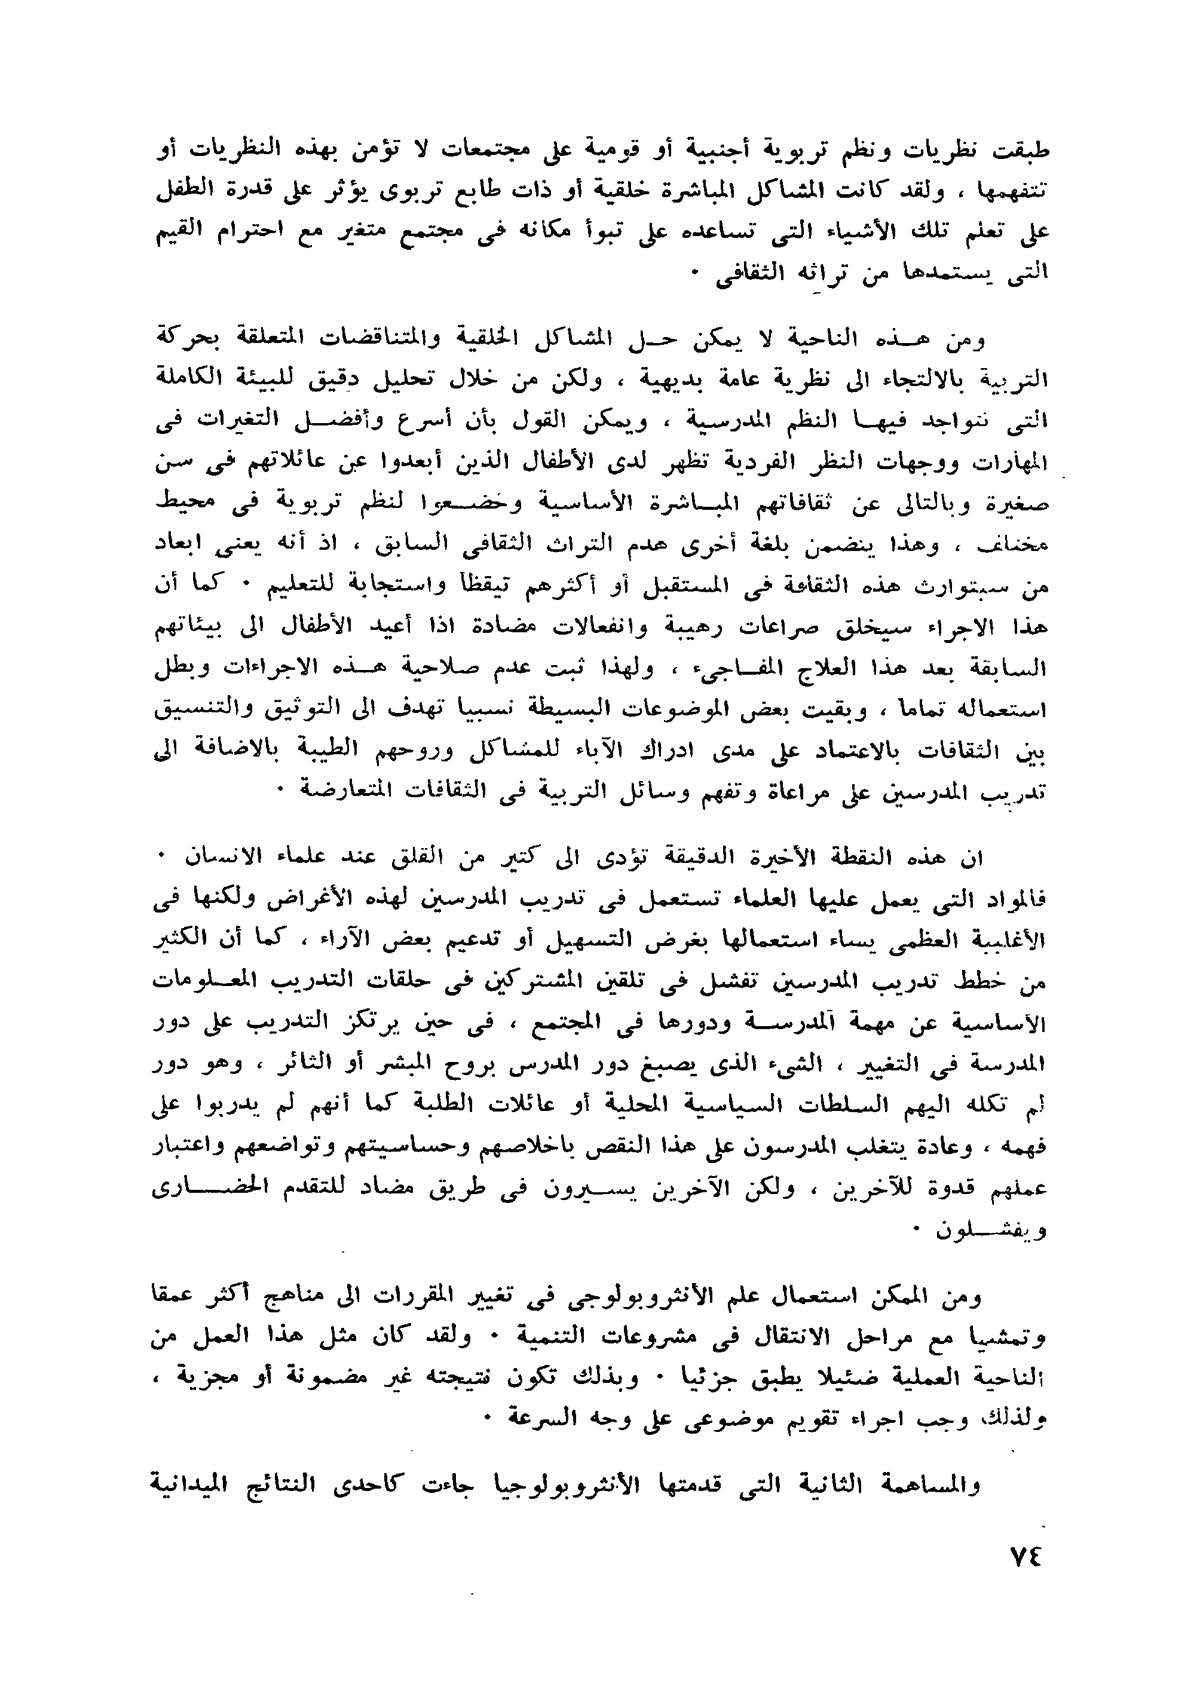 طبقت نظريات ونظم تربوية أجنبية أو قومية على مجتمعات لا تؤمن بهذه النظريات أو
تتفهمها ، ولقد كانت المشاكل المباشرة خلقية أو ذات طابع تربوى يؤثر على قدرة الطفل
على تعلم تلك الأشياء التى تساعده على تبوأ مكانه فى مجتمع متغير مع احترام القيم
التى يستمدها من تراثه الثقافى ٠
ومن هــذه الناحية لا يمكن حــل المشاكل الخلقية والمتناقضات المتعلقة بحركة
التربية بالالتجاء الى نظرية عامة بديهية ، ولكن من خلال تحليل دقيق للبيئة الكاملة
التى تتواجد فيهــا النظم المدرسية ، ويمكن القول بأن أسرع وأفضــل التغيرات فى
المهارات ووجهات النظر الفردية تظهر لدى الأطفال الذين أبعدوا عن عائلاتهم فى سن
صغيرة وبالتالى عن ثقافاتهم المبــاشرة الأساسية وخضــعوا لنظم تربوية فى محيط
مختلف ، وهذا يتضمن بلغة أخرى هدم التراث الثقافى السابق ، اذ أنه يعنى ابعاد
من سيتوارث هذه الثقافة فى المستقبل أو أكثرهم تيقظا واستجابة للتعليم ٠ كما أن
هذا الاجراء سيخلق صراعات رهيبة وانفعالات مضادة اذا أعيد الأطفال الى بيئاتهم
السابقة بعد هذا العلاج المفــاجىء ، ولهذا ثبت عدم صلاحية هــذه الاجراءات وبطل
استعماله تماما ، وبقيت بعض الموضوعات البسيطة نسبيا تهدف الى التوثيق والتنسيق
بين الثقافات بالاعتماد على مدى ادراك الآباء للمشاكل وروحهم الطيبة بالاضافة الى
تدريب المدرسين على مراعاة وتفهم وسائل التربية فى الثقافات المتعارضة ٠
ان هذه النقطة الأخيرة الدقيقة تؤدى الى كتير من القلق عند علماء الانسان ٠
فالمواد التى يعمل عليها العلماء تستعمل فى تدريب المدرسين لهذه الأغراض ولكنها فى
الأغلبية العظمى يساء استعمالها بغرض التسهيل أو تدعيم بعض الآراء ، كما أن الكثير
من خطط تدريب المدرسين تفشل فى تلقين المشتركين فى حلقات التدريب المعــلومات
الأساسية عن مهمة المدرســة ودورها فى المجتمع ، فى حين يرتكز التدريب على دور
المدرسة فى التغيير ، الشىء الذى يصبغ دور المدرس بروح المبشر أو الثائر ، وهو دور
لم تكله اليهم السلطات السياسية المحلية أو عائلات الطلبة كما أنهم لم يدربوا على
فهمه ، وعادة يتغلب المدرسون على هذا النقص باخلاصهم وحساسيتهم وتواضعهم واعتبار
عملهم قدوة للآخرين ، ولكن الآخرين يســيرون فى طريق مضاد للتقدم الحضــارى
ويفشــلون ٠
ومن الممكن استعمال علم الأنثروبولوجى فى تغيير المقررات الى مناهج أكثر عمقا
وتمشيا مع مراحل الانتقال فى مشروعات التنمية ٠ ولقد كان مثل هذا العمل من
الناحية العملية ضئيلا يطبق جزئيا ٠ وبذلك تكون نتيجته غير مضمونة أو مجزية ،
ولذلك وجب اجراء تقويم موضوعى على وجه السرعة ٠
والمساهمة الثانية التى قدمتها الأنثروبولوجيا جاءت كاحدى النتائج الميدانية
٧٤